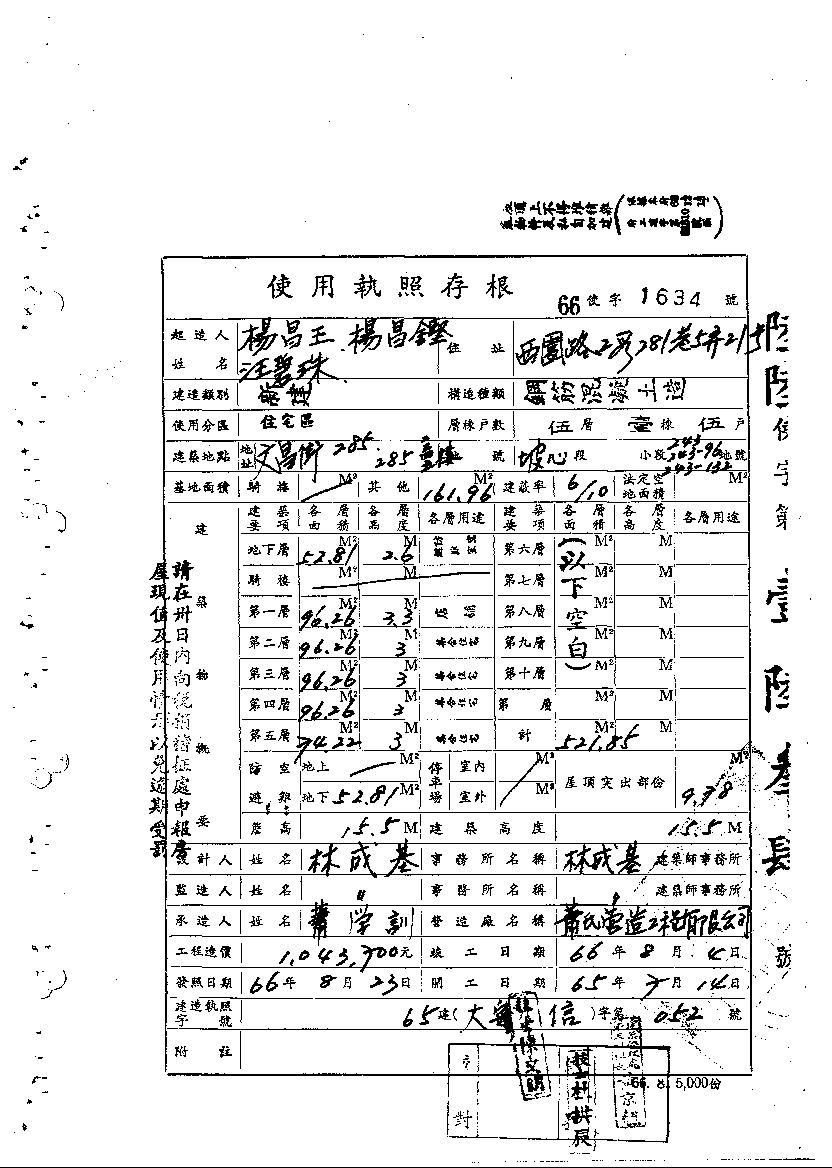 使用執照存根
66 使字 1634 號
起造人姓名 楊昌王 楊昌鏗 汪碧珠 住址 西園路2段281巷5弄21號
建造類別 新建 構造種類 鋼筋混凝土造
使用分區 住宅區 層棟戶數 伍層 壹棟 伍戶
建築地點 地址 文昌街 285 號 坡心段 小段 243 243-96 243-132 地號
基地面積 騎樓 M² 其他 161.96 M² 建蔽率 6/10 法定空地面積 M²
建築物概要
建築要項 各層面積 各層高度 各層用途 建築要項 各層面積 各層高度 各層用途
地下層 52.81 M² 2.6 M 第六層 M² M
騎樓 M² M 第七層 M² M
第一層 96.26 M² 3.3 M 店舖 第八層 M² M
第二層 96.26 M² 3 M 集合住宅 第九層 M² M
第三層 96.26 M² 3 M 集合住宅 第十層 M² M
第四層 96.26 M² 3 M 集合住宅 第 層 M² M
第五層 74.22 M² 3 M 集合住宅 計 521.85 M² M
(以下空白)
防空避難 地上 M² 停車場 室內 M² 屋頂突出部份 9.78 M²
地下 52.81 M² 室外 M²
簷高 15.5 M 建築高度 15.5 M
設計人 姓名 林成基 事務所名稱 林成基 建築師事務所
監造人 姓名 〃 事務所名稱 〃 建築師事務所
承造人 姓名 蕭學訓 營造廠名稱 蕭氏營造工程有限公司
工程造價 1,043,700元 竣工日期 66年8月4日
發照日期 66年8月23日 開工日期 65年7月14日
建造執照字號 65建(大安)(信)字第 052 號
附註
66. 8. 5,000份
請在卅日內向稅捐稽征處申報房
屋現值及使用情形以免逾期受罰
陸陸使字第壹陸叁肆號
校對